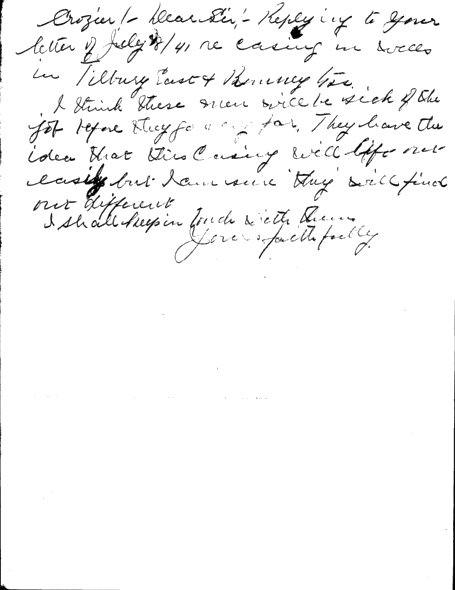 Crozier:- Dear Sir:- Replying to your
letter of July 8/41 re casing in wells
in Tilbury East & Romney Tps.
I think these men will be sick of the
job before they go very far. They have the
idea that this Casing will lift out
easily but I am sure they will find
out different
I shall keep in touch with them
Yours faithfully